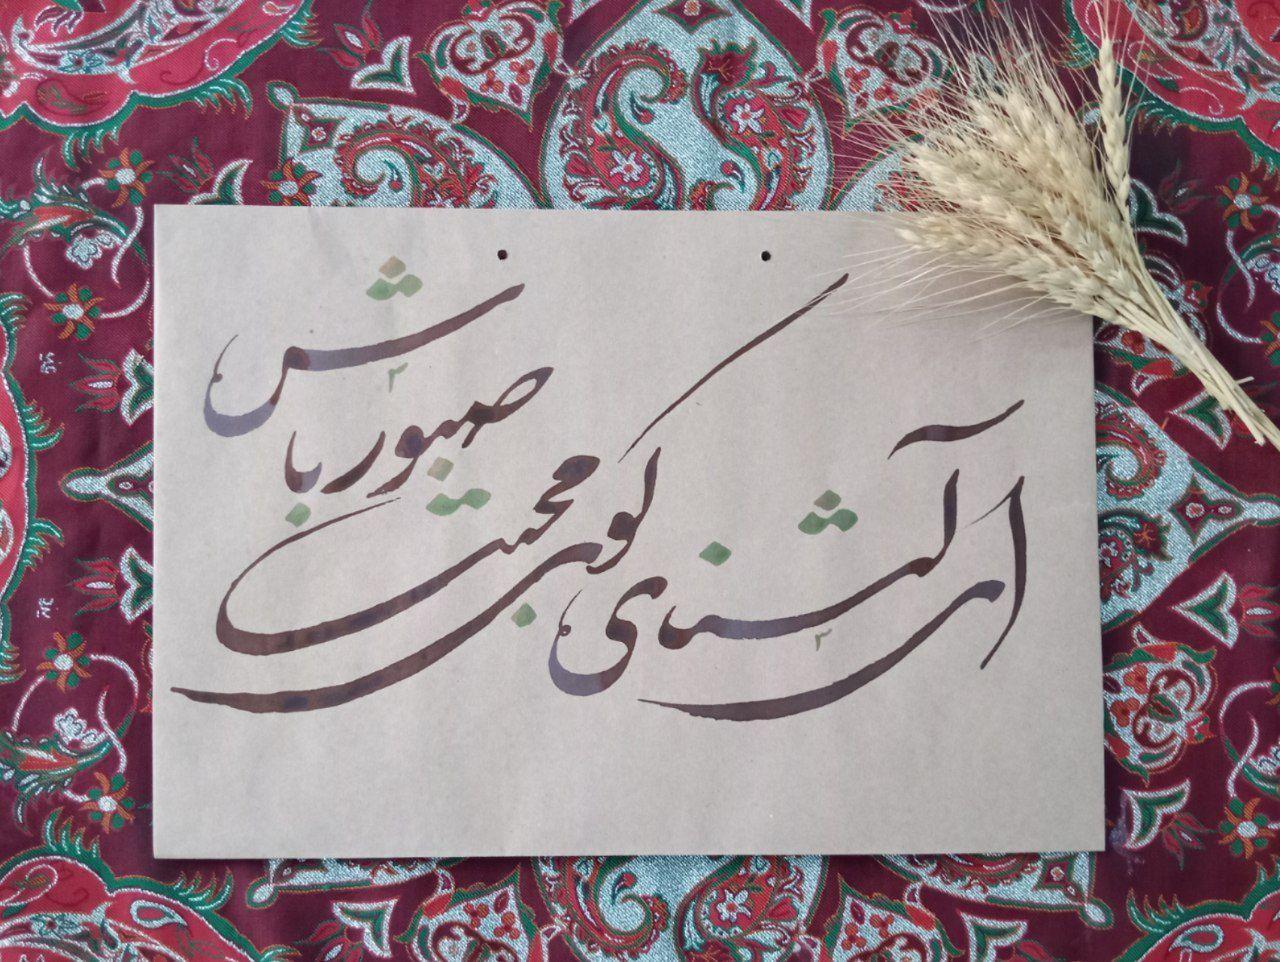 ای آشنای کوی محبت صبور باش